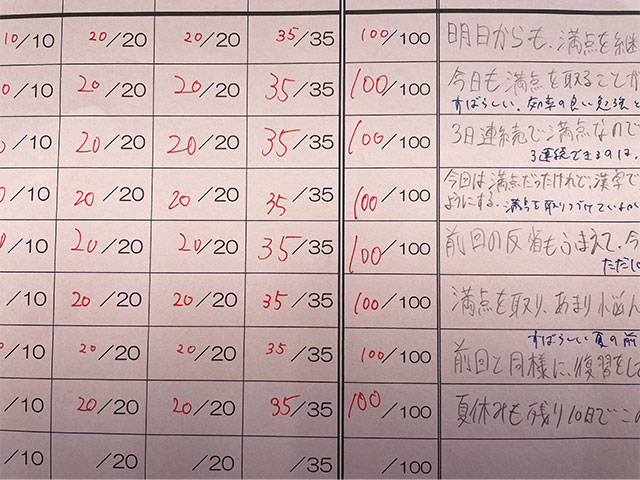 10/10 20/20 20/20 35/35 100/100 明日からも、満点を継
0/10 20/20 20/20 35/35 100/100 今日も満点を取ることが
すばらしい。効率の良い勉強と
/10 20/20 20/20 35/35 100/100 3日連続で満点なので
3連続できるのは、
/10 20/20 20/20 35/35 100/100 今回は満点だったけれど、漢字で
ようにする。満点を取りつづけていよか
0/10 20/20 20/20 35/35 100/100 前回の反省もふまえて、今
ただし
/10 20/20 20/20 35/35 100/100 満点を取り、あまり悩ん
すばらしい夏の前
0/10 20/20 20/20 35/35 100/100 前回と同様に、復習をして
/10 20/20 20/20 35/35 100/100 夏休みも残り10日でこの
/10 /20 /20 /35 /100